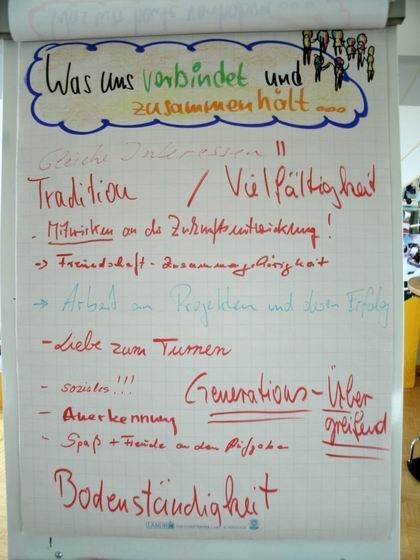 Was uns verbindet und
zusammenhält...
Gleiche Interessen !!
Tradition / Vielfältigkeit
- Mitwirken an der Zukunftsentwicklung!
→ Freundschaft - Zusammengehörigkeit
→ Arbeit an Projekten und deren Erfolg
- Liebe zum Turnen
- soziales!!!
Generations - Über
greifend
- Anerkennung
- Spaß + Freude an den Aufgaben
Bodenständigkeit